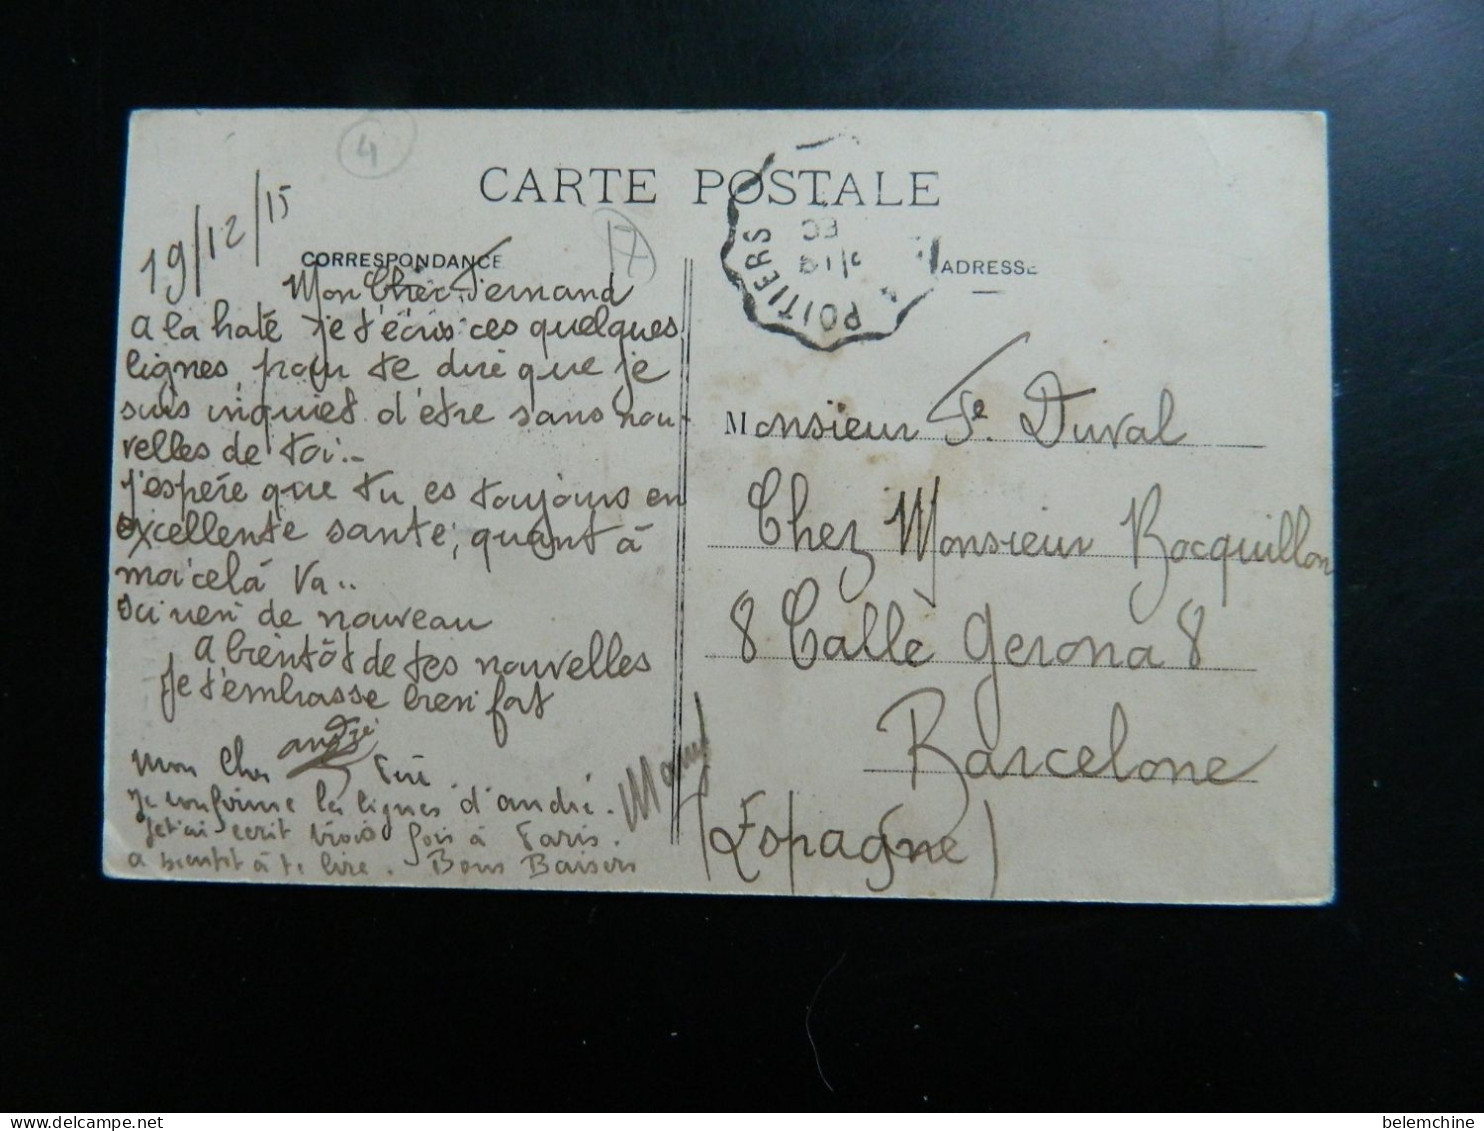 4
CARTE POSTALE
19/12/15
17
POITIERS
19
EC
CORRESPONDANCE
ADRESSE
Mon Cher Fernand
a la hate je t'écris ces quelques
lignes pour te dire que je
suis inquiet d'être sans nou-
velles de toi.-
j'espére que tu es toujours en
excellente santé, quant à
moi celà va..
ici rien de nouveau
A bientôt de tes nouvelles
Je t'embrasse bien fort
andré
Mon Cher
je confirme les lignes d'andré.
Je t'ai ecrit trois fois à Paris.
a bientot à te lire. Bons Baisers
Monsieur Fe. Duval
Chez Monsieur Rocquillon
8 Calle Gerona 8
Barcelone
(Espagne)
belemchine